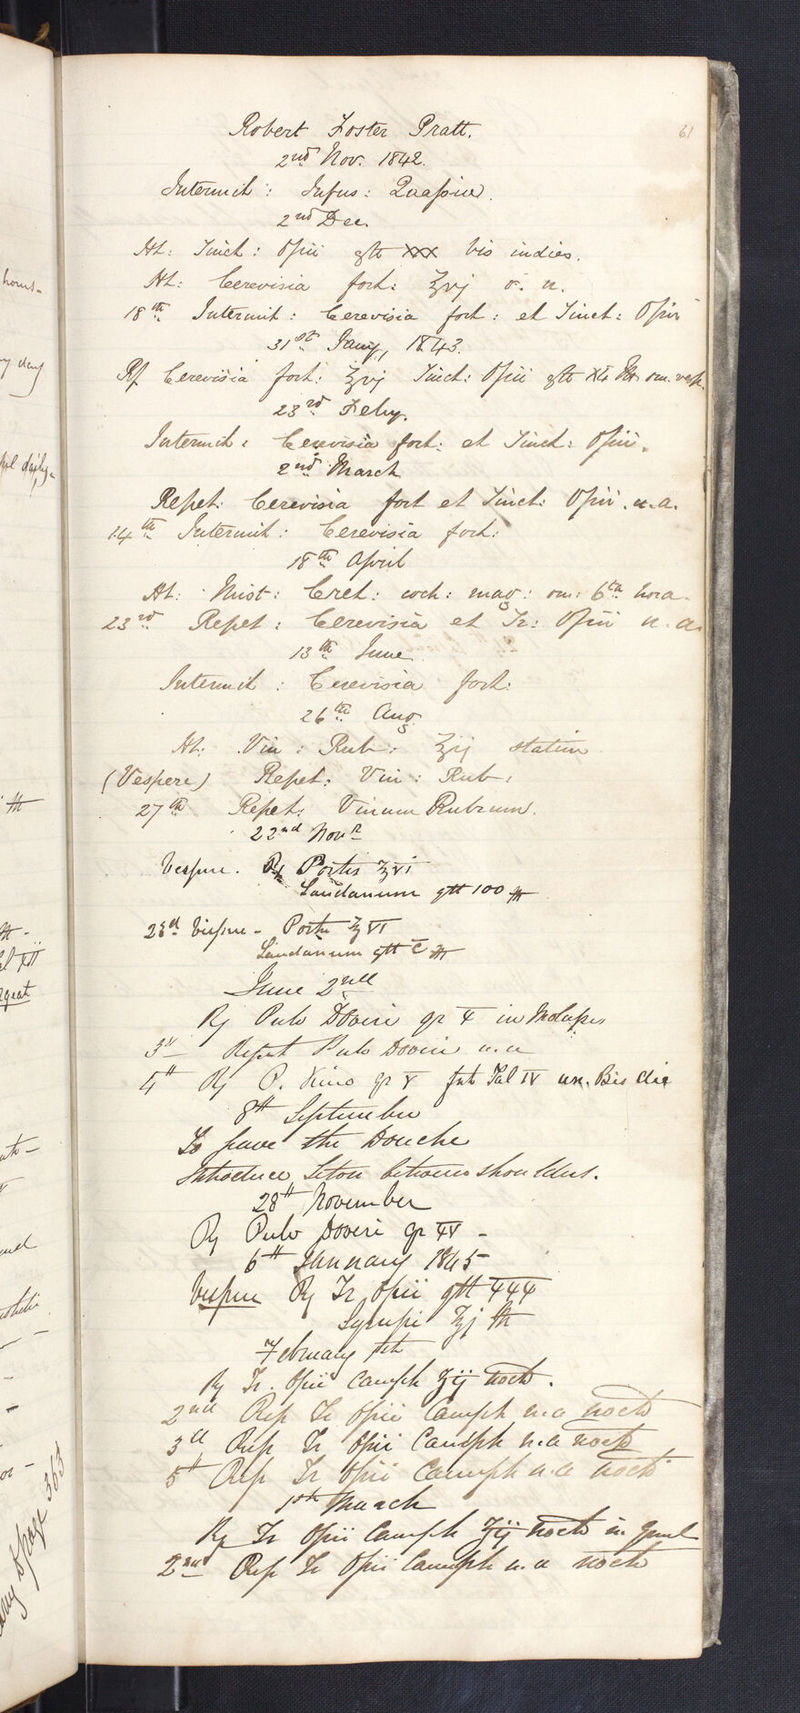 61
Robert Foster Pratt.
2nd Nov. 1842.
Intermit: Infus: Quassiæ.
2nd Dec.
Ht: Tinct: Opii gtts XXX bis indies.
Ht: Cerevisia fort: ʒvj o. n.
18th Intermit: Cerevisia fort: et Tinct: Opii
31st Jany, 1843.
Rp Cerevisia fort: ʒvj Tinct: Opii gtts XL Ht om. vesp.
23rd Feby.
Intermit: Cerevisia fort: et Tinct: Opii.
2nd March
Repet: Cerevisia fort et Tinct: Opii. u.a.
14th Intermit: Cerevisia fort:
18th April
Ht: Mist: Cret: coch: mag: om: 6ta hora.
23rd Repet: Cerevisia et Tr: Opii u.a.
13th June
Intermit: Cerevisia fort:
26th Aug.
Ht: Vin: Rub: ʒij statim
(Vespere) Repet: Vin: Rub:
27th Repet: Vinum Rubrum.
22nd Novr
Vespere. Rx Porter ʒvi
Laudanum gtt 100 Ht
23rd Vespere - Porter ʒVI
Laudanum gtt C Ht
June 2nd
Rx Pulv Doveri gr X in
3rd Repet Pulv Doveri u.a
4th Rx P. gr V Pal IV Bis die
8th September
To have the Douche
Introduce Seton between shoulders.
28th November
Rx Pulv Doveri gr XV -
6th January 1845
Vespere Rx Tr Opii gtt XXX
Syrupi ʒj Ht
February 1st
Rx Tr. Opii Camph ʒij nocte.
2nd Rep Tr Opii Camph u.a nocte
3rd Rep Tr Opii Camph u.a nocte
5th Rep Tr Opii Camph u.a nocte
1st March
Rx Tr Opii Camph ʒij nocte in
2nd Rep Tr Opii Camph u.a nocte